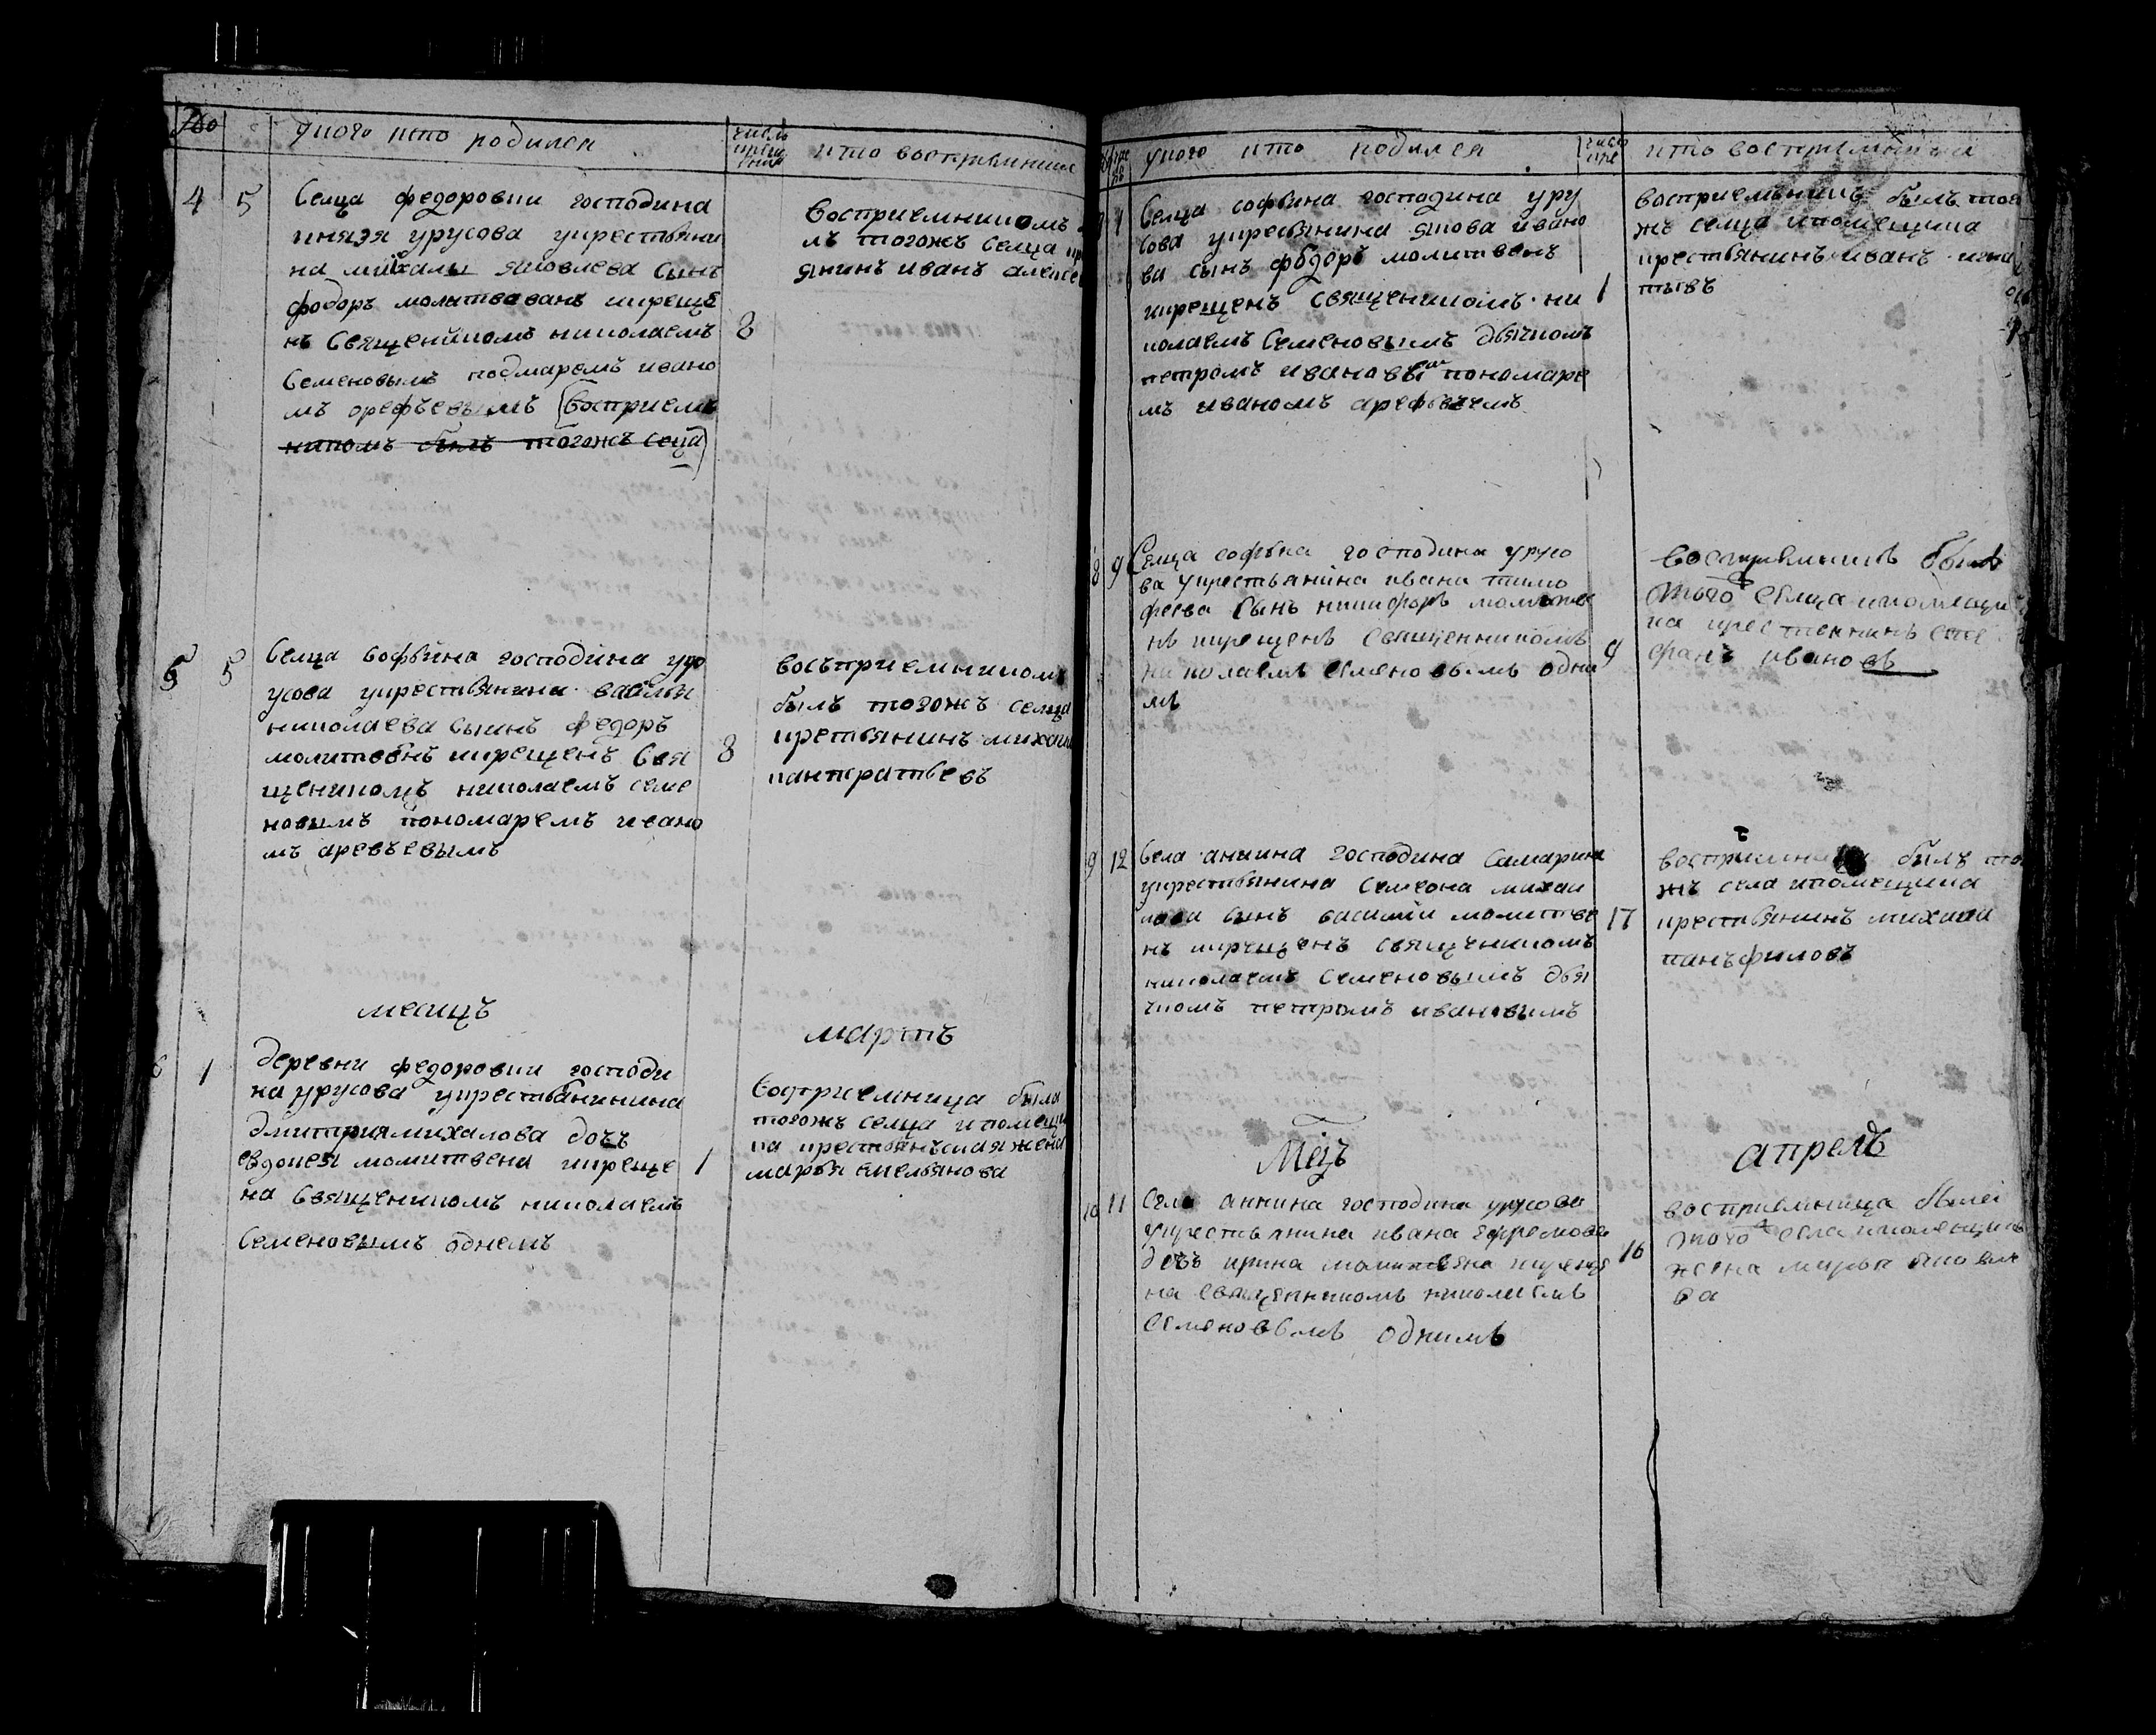 у кого кто родился
число крещения
кто восприемники
4 5 Селца федоровки господина
князя урусова укрестьяни
на михалы яковлева сынъ
фодоръ молитвованъ икреще
нъ Священикомъ николаемъ
8
Семеновымъ подмаремъ ивано
мъ орефъевымъ (восприем
никомъ былъ тогожъ сеца)
Восприемникомъ
лъ тогожъ Селца кр
янинъ иванъ алексе
5 5 Селца софьина господина уру
усова укрестьянина василья
николаева сынъ федоръ
молитвенъ икрещенъ Свя
8
щеникомъ николаемъ семе
новымъ пономаремъ ивано
мъ аревъевымъ
восъприемникомъ
былъ тогожъ селца
кретьянинъ михаил
панкратьевъ
месицъ
мартъ
6 1 деревни федоровки господи
на урусова укрестьянинина
дмитрия михалова дочъ
евдокея молитвена икреще
1
на Священикомъ николаемъ
Семеновымъ однемъ
Восприемница была
тогожъ селца ипомещи
ка крестьянъская жена
марья емельянова
у кого кто родился
число кре
кто восприемники
1 Селца софьина господина уру
сова укресьянина якова ивано
ва сынъ фодоръ молитвенъ
икрещенъ священикомъ ни
1
колаемъ Семеновымъ дьячкомъ
петромъ ивановымъ пономаре
мъ иваномъ арефьевемъ
восприемъникъ былъ того
жъ селца ипомещика
крестьянинъ иванъ игна
тьевъ
8 9 Селца софьна господина урусо
ва укрестьянина ивана тимо
феева сынъ никифоръ молитве
нъ икрещенъ священникомъ
9
николаемъ семеновымъ одни
мъ
восприемникъ былъ
того ж селца ипомещи
ка крестеянинъ сте
фанъ ивановъ
9 12 Села аннина господина Самарина
укрестьянина Семеона михаи
лова сынъ василии молитве
17
нъ икрещенъ священикомъ
николаемъ Семеновымъ дья
чкомъ петромъ ивановымъ
восприемникъ былъ то
жъ села ипомещика
крестьянинъ михаила
панъфиловъ
Мецъ
апрелъ
10 11 Села аннина господина урусова
укрестьянина ивана ефремова
дочъ ирина молитвена икреще
16
на священникомъ николаемъ
Семеновымъ однимъ
восприемница была
того ж села ипомещика
жена марья яковле
ва